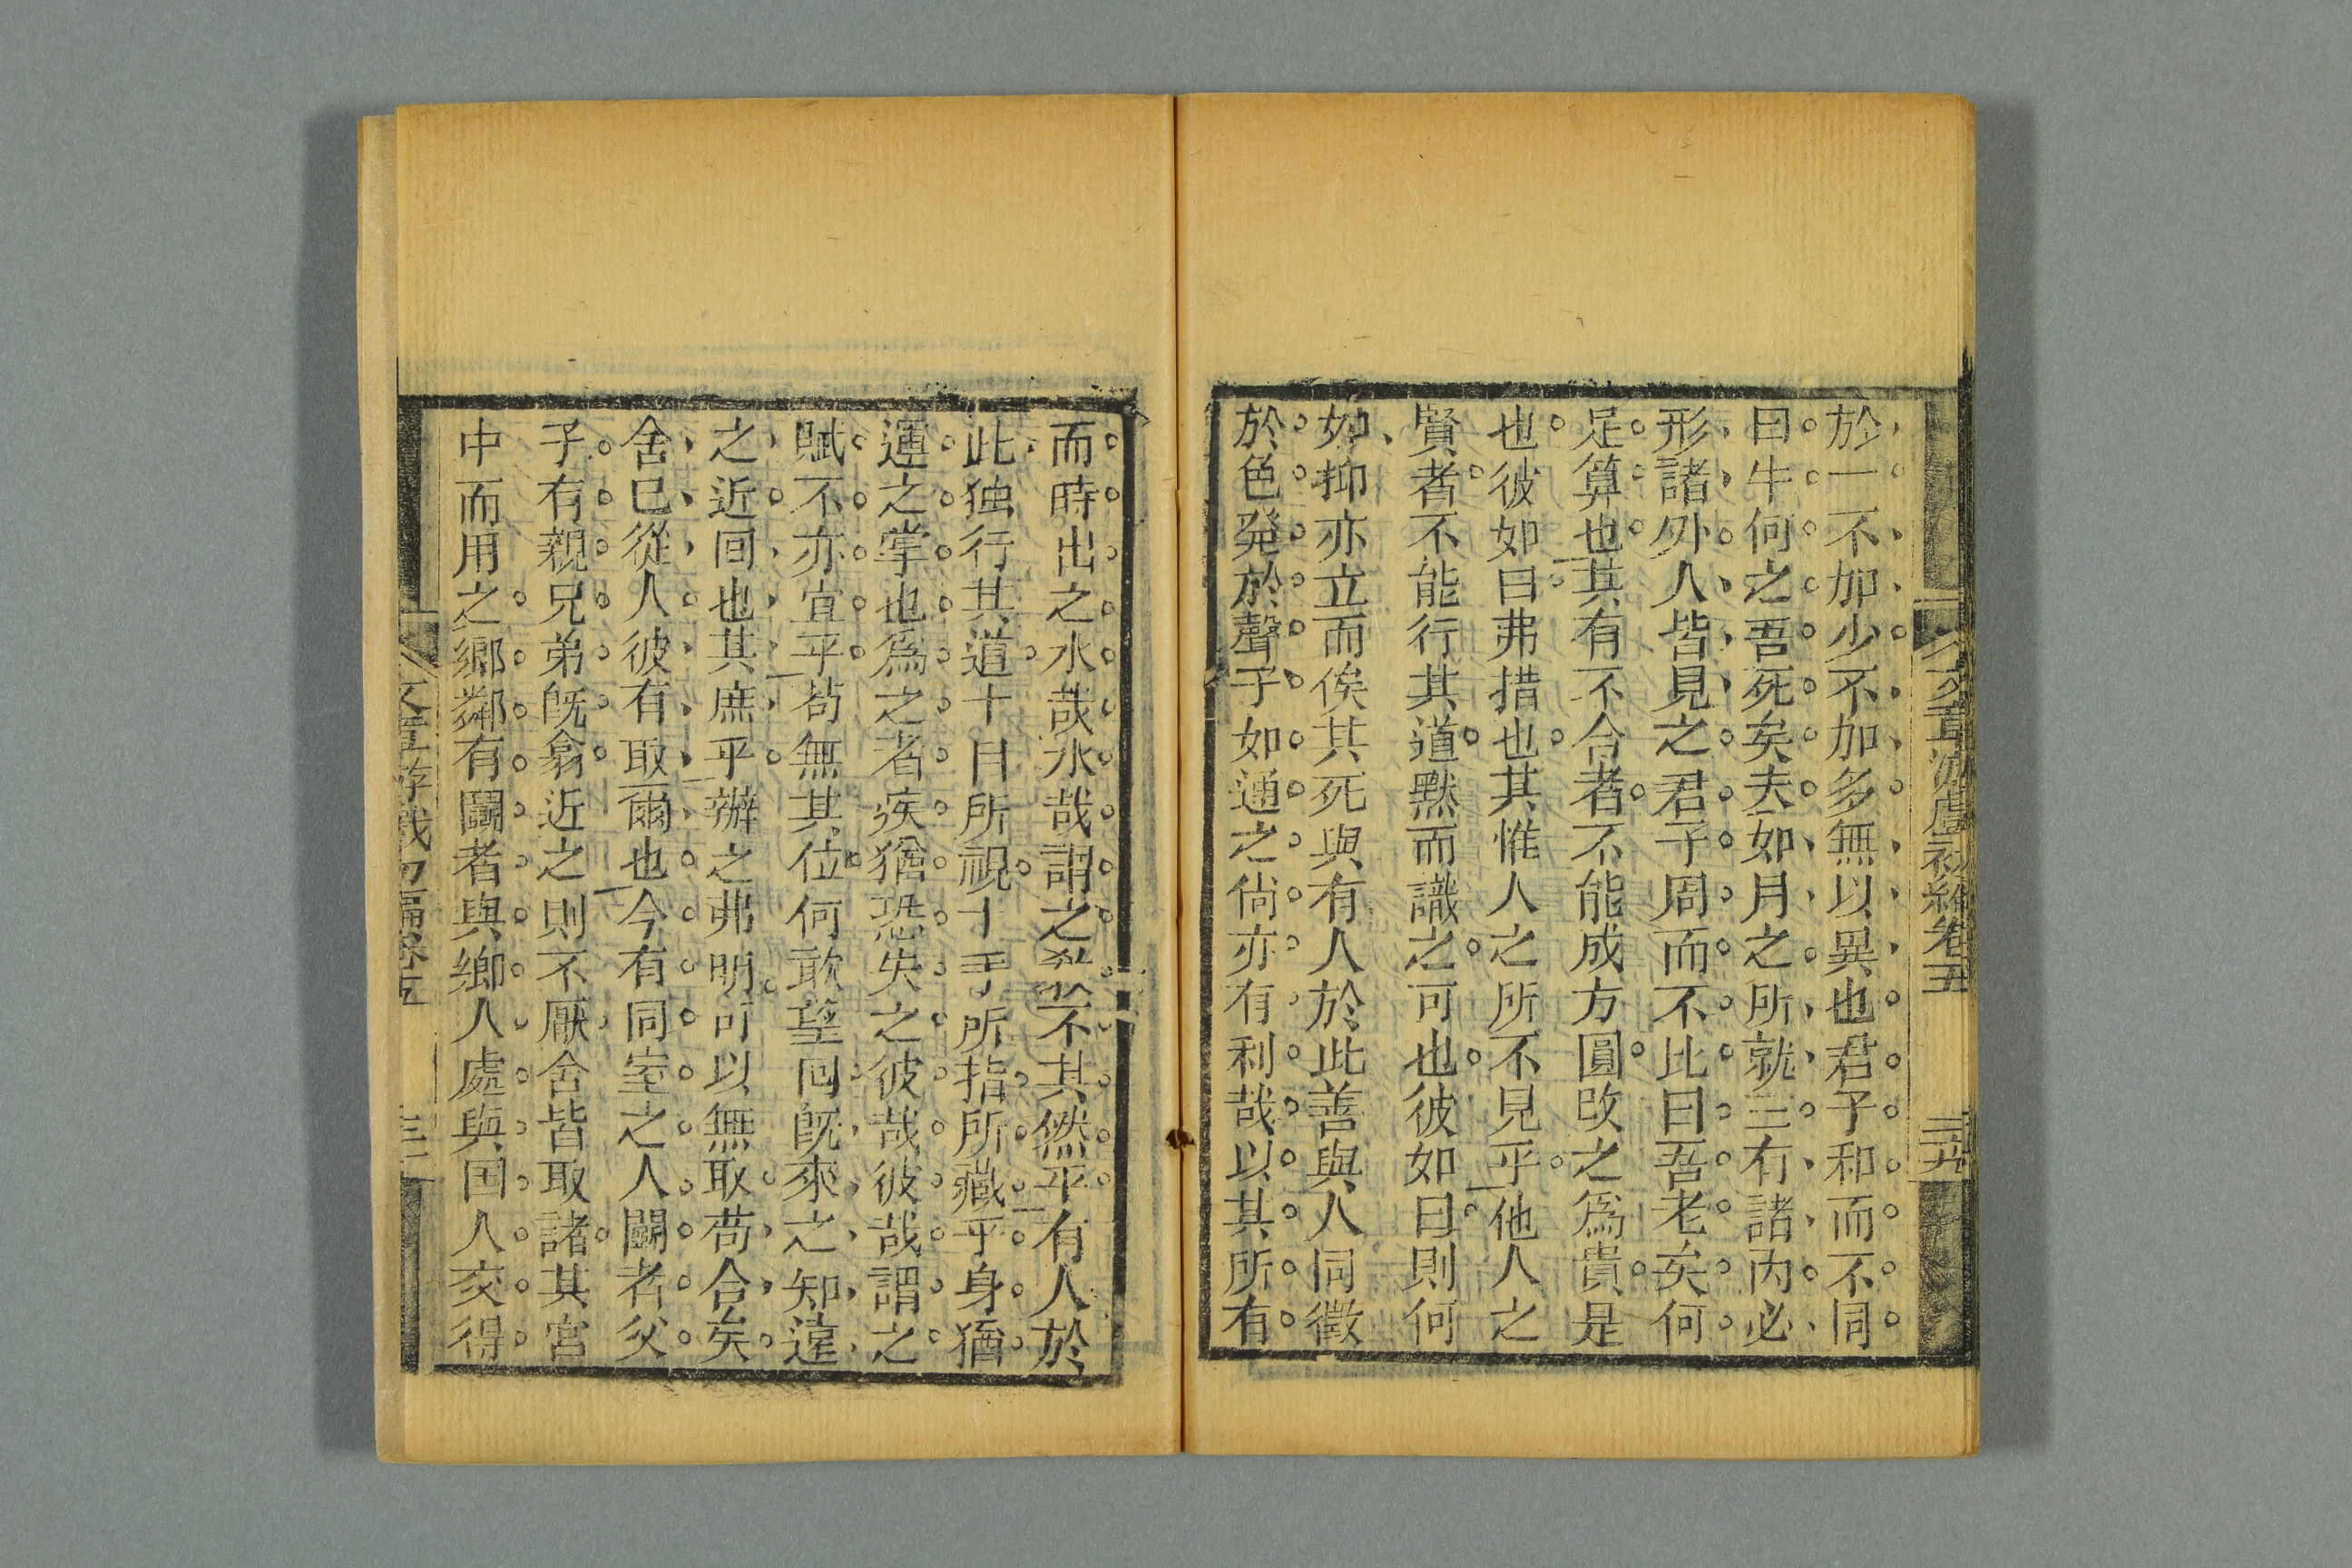 於一不加少不加多無以異也君子和而不同
曰牛何之吾死矣夫如月之所就三有諸内必
形諸外人皆見之君子周而不比曰吾老矣何
足算也其有不合者不能成方圓改之為貴是
也彼如曰弗措也其惟人之所不見乎他人之
賢者不能行其道默而識之可也彼如曰則何
如抑亦立而俟其死與有人於此善與人同徵
於色発於聲子如通之尚亦有利哉以其所有
而時出之水哉水哉謂之不其然乎有人於
此独行其道十目所視十手所指所藏乎身猶
運之掌也為之者疾猶恐失之彼哉彼哉謂之
賦不亦宜乎苟無其位何敢望回旣來之知遠
之近回也其庶乎辦之弗明可以無取苟合矣
舍已從人彼有取爾也今有同室之人鬪者父
子有親兄弟旣翕近之則不厭舍皆取諸其宮
中而用之鄉鄰有鬪者與鄉人處與国人交得